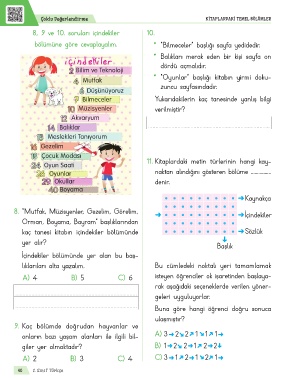 Çoklu Değerlendirme
KİTAPLARDAKİ TEMEL BÖLÜMLER
8, 9 ve 10. soruları içindekiler
bölümüne göre cevaplayalım.
içindekiler
2 Bilim ve Teknoloji
4 Mutfak
6 Düşünüyoruz
7 Bilmeceler
10 Müzisyenler
12 Akvaryum
14 Balıklar
13 Meslekleri Tanıyorum
16 Gezelim
18 Çocuk Modası
24 Oyun Saati
26 Oyunlar
29 Okullar
40 Boyama
8. "Mutfak, Müzisyenler, Gezelim, Görelim,
Orman, Boyama, Bayram" başlıklarından
kaç tanesi kitabın içindekiler bölümünde
yer alır?
İçindekiler bölümünde yer alan bu baş-
lıkların altı yazalım.
A) 4 B) 5 C) 6
9. Kaç bölümde doğrudan hayvanlar ve
onların bazı yaşam alanları ile ilgili bil-
giler yer almaktadır?
A) 2 B) 3 C) 4
10.
* "Bilmeceler" başlığı sayfa yedidedir.
* Balıkları merak eden bir kişi sayfa on
dördü açmalıdır.
* "Oyunlar" başlığı kitabın yirmi doku-
zuncu sayfasındadır.
Yukarıdakilerin kaç tanesinde yanlış bilgi
verilmiştir?
11. Kitaplardaki metin türlerinin hangi kay-
naktan alındığını gösteren bölüme ............
denir.
→ Kaynakça
→ → İçindekiler
→ Sözlük
↓
Başlık
Bu cümledeki noktalı yeri tamamlamak
isteyen öğrenciler ok işaretinden başlaya-
rak aşağıdaki seçeneklerde verilen yöner-
geleri uyguluyorlar.
Buna göre hangi öğrenci doğru sonuca
ulaşmıştır?
60
2. SINIF TÜRKÇE